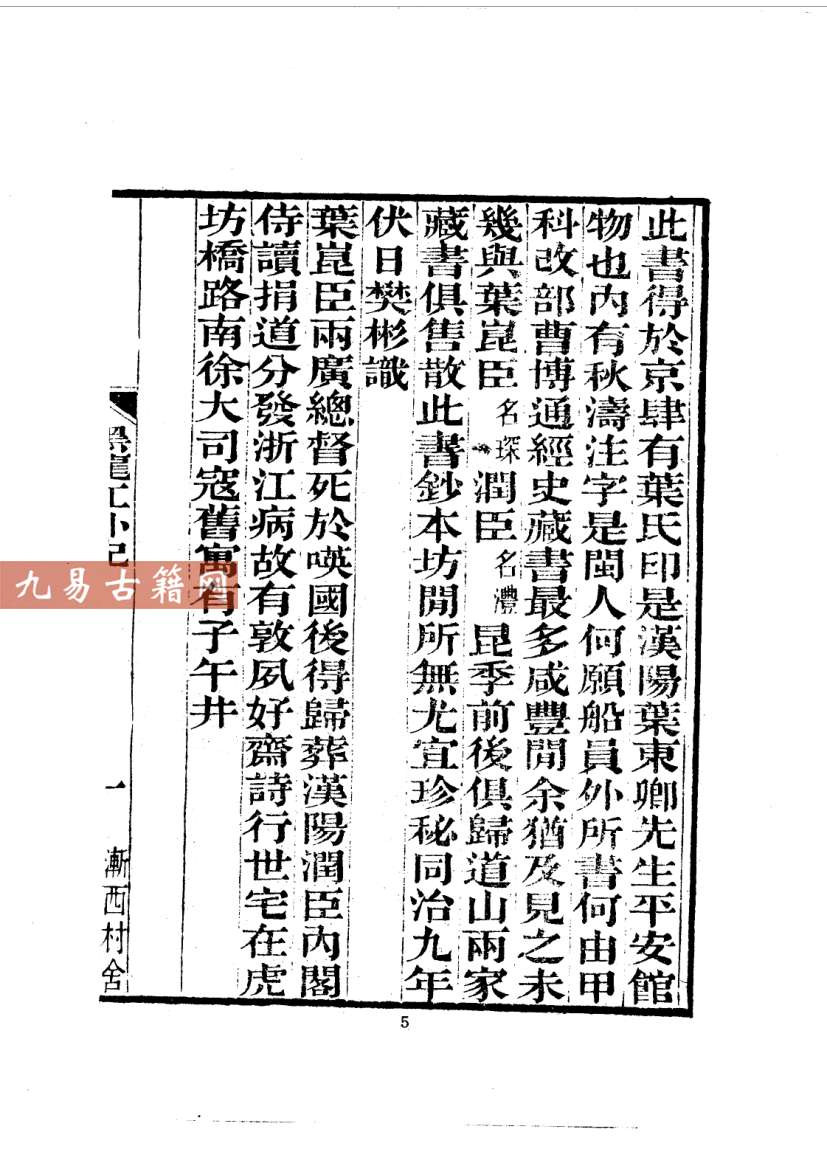 此書得於京肆有葉氏印是漢陽葉東卿先生平安館
物也內有秋濤注字是閩人何願船員外所書何由甲
科改部曹博通經史藏書最多咸豐閒余猶及見之未
幾與葉崑臣名琛潤臣名灃昆季前後俱歸道山兩家
藏書俱售散此書鈔本坊閒所無尤宜珍秘同治九年
伏日樊彬識
葉崑臣兩廣總督死於𠸄國後得歸葬漢陽潤臣內閣
侍讀捐道分發浙江病故有敦夙好齋詩行世宅在虎
坊橋路南徐大司寇舊寓有子午井
黑龍江外記
一
漸西村舍
九易古籍网
5